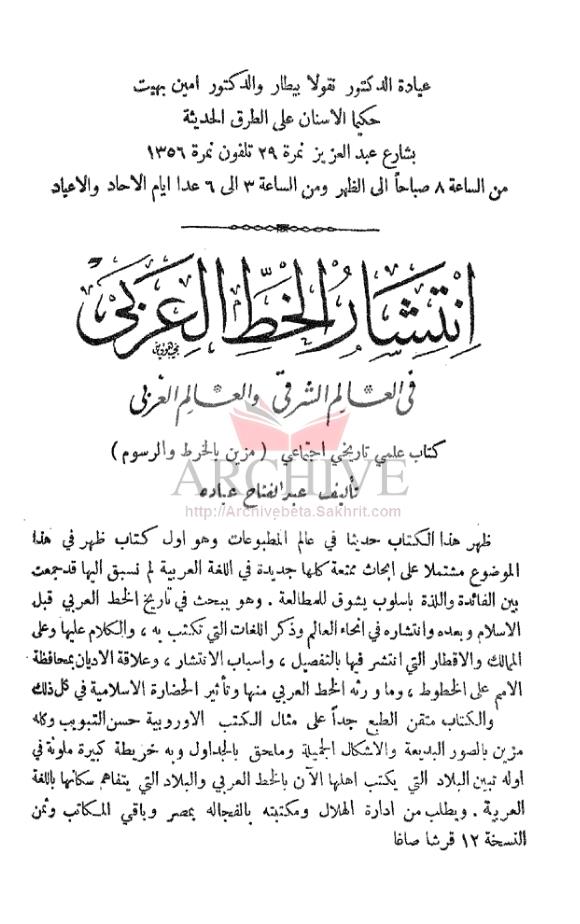 عيادة الدكتور نقولا بيطار والدكتور امين بهيت
حكيما الاسنان على الطرق الحديثة
بشارع عبد العزيز نمرة ٢٩ تلفون نمرة ١٣٥٦
من الساعة ٨ صباحاً الى الظهر ومن الساعة ٣ الى ٦ عدا ايام الاحاد والاعياد
انتشار الخط العربي
في العالم الشرقي والعالم الغربي
كتاب علمي تاريخي اجتماعي ( مزين بالخرط والرسوم )
ARCHIVE
تأليف عبد الفتاح عباده
http://Archivebeta.Sakhrit.com
ظهر هذا الكتاب حديثا في عالم المطبوعات وهو اول كتاب ظهر في هذا
الموضوع مشتملا على ابحاث ممتعة كلها جديدة في اللغة العربية لم نسبق اليها قد جمعت
بين الفائدة واللذة باسلوب يشوق للمطالعة . وهو يبحث في تاريخ الخط العربي قبل
الاسلام وبعده وانتشاره في انحاء العالم وذكر اللغات التي تكتب به ، والكلام عليها وعلى
الممالك والاقطار التي انتشر فيها بالتفصيل ، واسباب الانتشار ، وعلاقة الاديان بمحافظة
الامم على الخطوط ، وما ورثه الخط العربي منها وتأثير الحضارة الاسلامية في كل ذلك
والكتاب متقن الطبع جداً على مثال الكتب الاوروبية حسن التبويب وكله
مزين بالصور البديعة والاشكال الجميلة وملحق بالجداول وبه خريطة كبيرة ملونة في
اوله تبين البلاد التي يكتب اهلها الآن بالخط العربي والبلاد التي يتفاهم سكانها باللغة
العربية . ويطلب من ادارة الهلال ومكتبته بالفجاله بمصر وباقي المكاتب وثمن
النسخة ١٢ قرشا صاغا